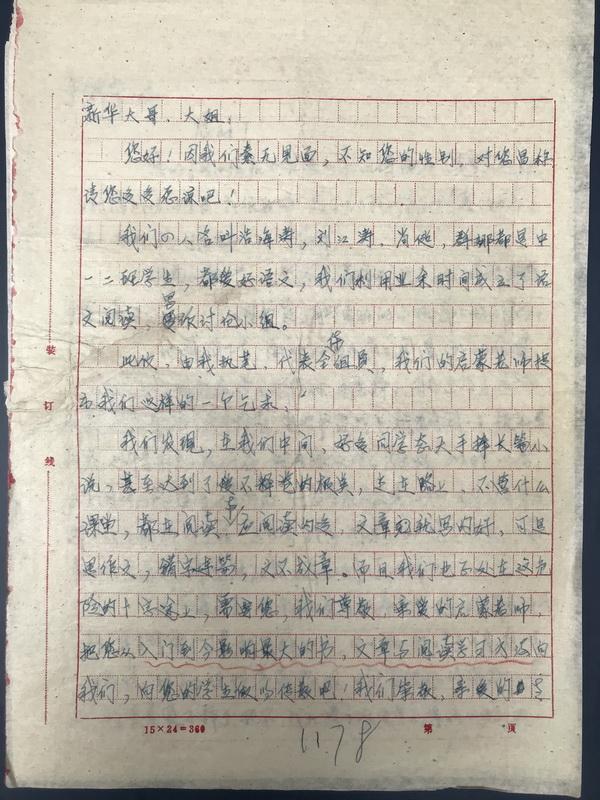 新华大哥、大姐:
您好!因我们素无见面,不知您的性别,对您冒称
请您多多原谅吧!
我们四人名叫 刘江涛、 都是中
一二班学生,都爱好语文,我们利用业余时间成立了语
文阅读,写 讨论小组。
此次,由我执笔,代表全体组员,我们的启蒙老师提
出我们这样的一个乞求:
我们发现,在我们中间,好多同学整天手捧长篇小
说,甚至达到了爱不释卷的极点,走在路上,不管什么
课堂,都在阅读 应阅读 文章 就写的好,可是
作文,错字连篇,文不成章。而且我们也正处在这危
险的十字路上,需要您,我们尊敬、亲爱的启蒙老师,
把您从入门到今影响最大的书,文章与阅读 方法向
我们,向您的学生做 传教吧!我们崇敬、亲爱的
装
订
线
15×24=360
第 页
11.78